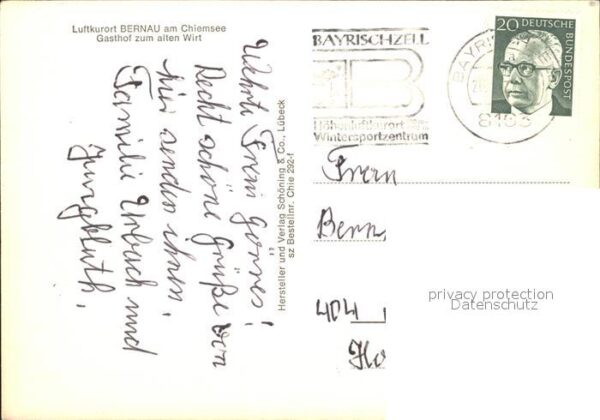 Luftkurort BERNAU am Chiemsee
Gasthof zum alten Wirt
Werte Frau Görres!
Recht schöne Grüße von
hier senden ihnen,
Familie Urbach und
Jungbluth.
Hersteller und Verlag Schöning & Co., Lübeck
sz Bestellnr. Chie 292-f
BAYRISCHZELL
Höhenluftkurort
Wintersportzentrum
BAYRIS
8163
20 DEUTSCHE
BUNDESPOST
Frau
Bern
404
Ho
privacy protection
Datenschutz